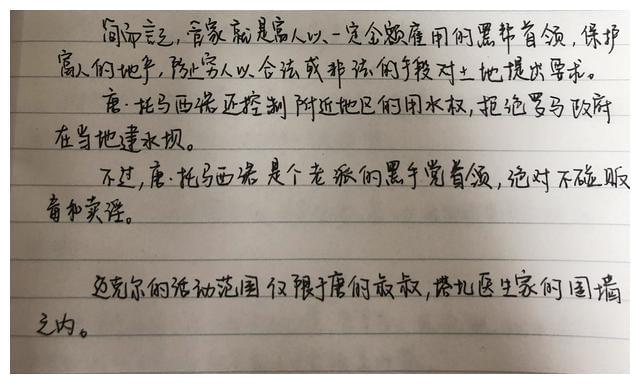 简而言之,管家就是富人以一定金额雇用的黑帮首领,保护
富人的地产,防止穷人以合法或非法的手段对土地提出要求。
唐·托马西诺还控制附近地区的用水权,拒绝罗马政府
在当地建水坝。
不过,唐·托马西诺是个老派的黑手党首领,绝对不碰贩
毒和卖淫。
迈克尔的活动范围仅限于唐的叔叔,塔扎医生家的围墙
之内。